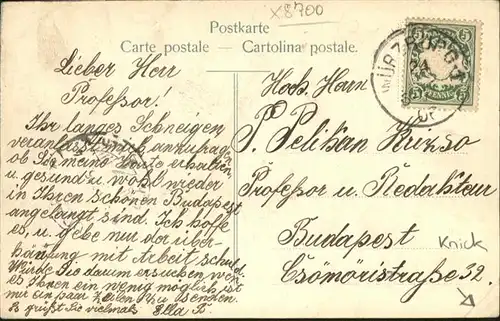 x8700
Postkarte
Carte postale. — Cartolina postale.
5 5
PFENNIG
5 5
WÜRZBURG
07
Lieber Herr
Professor!
Ihr langes Schweigen
veranlasst mich anzufragen
ob Sie meine Karte erhalten
u. gesund u. wohl wieder
in Ihren schönen Budapest
angelangt sind. Ich hoffe
es, u. gebe nur der über-
bürdung mit Arbeit schuld.
Würde Sie darum ersuchen wen
es Ihnen ein wenig möglich ist
mir ein paar Zeilen zu senden.
Es grüßt Sie vielmals Ella
Hoch. Herrn
P. Pelikan Krizso
Professor u. Redakteur
Budapest
Csömöristraße 32.
Knick